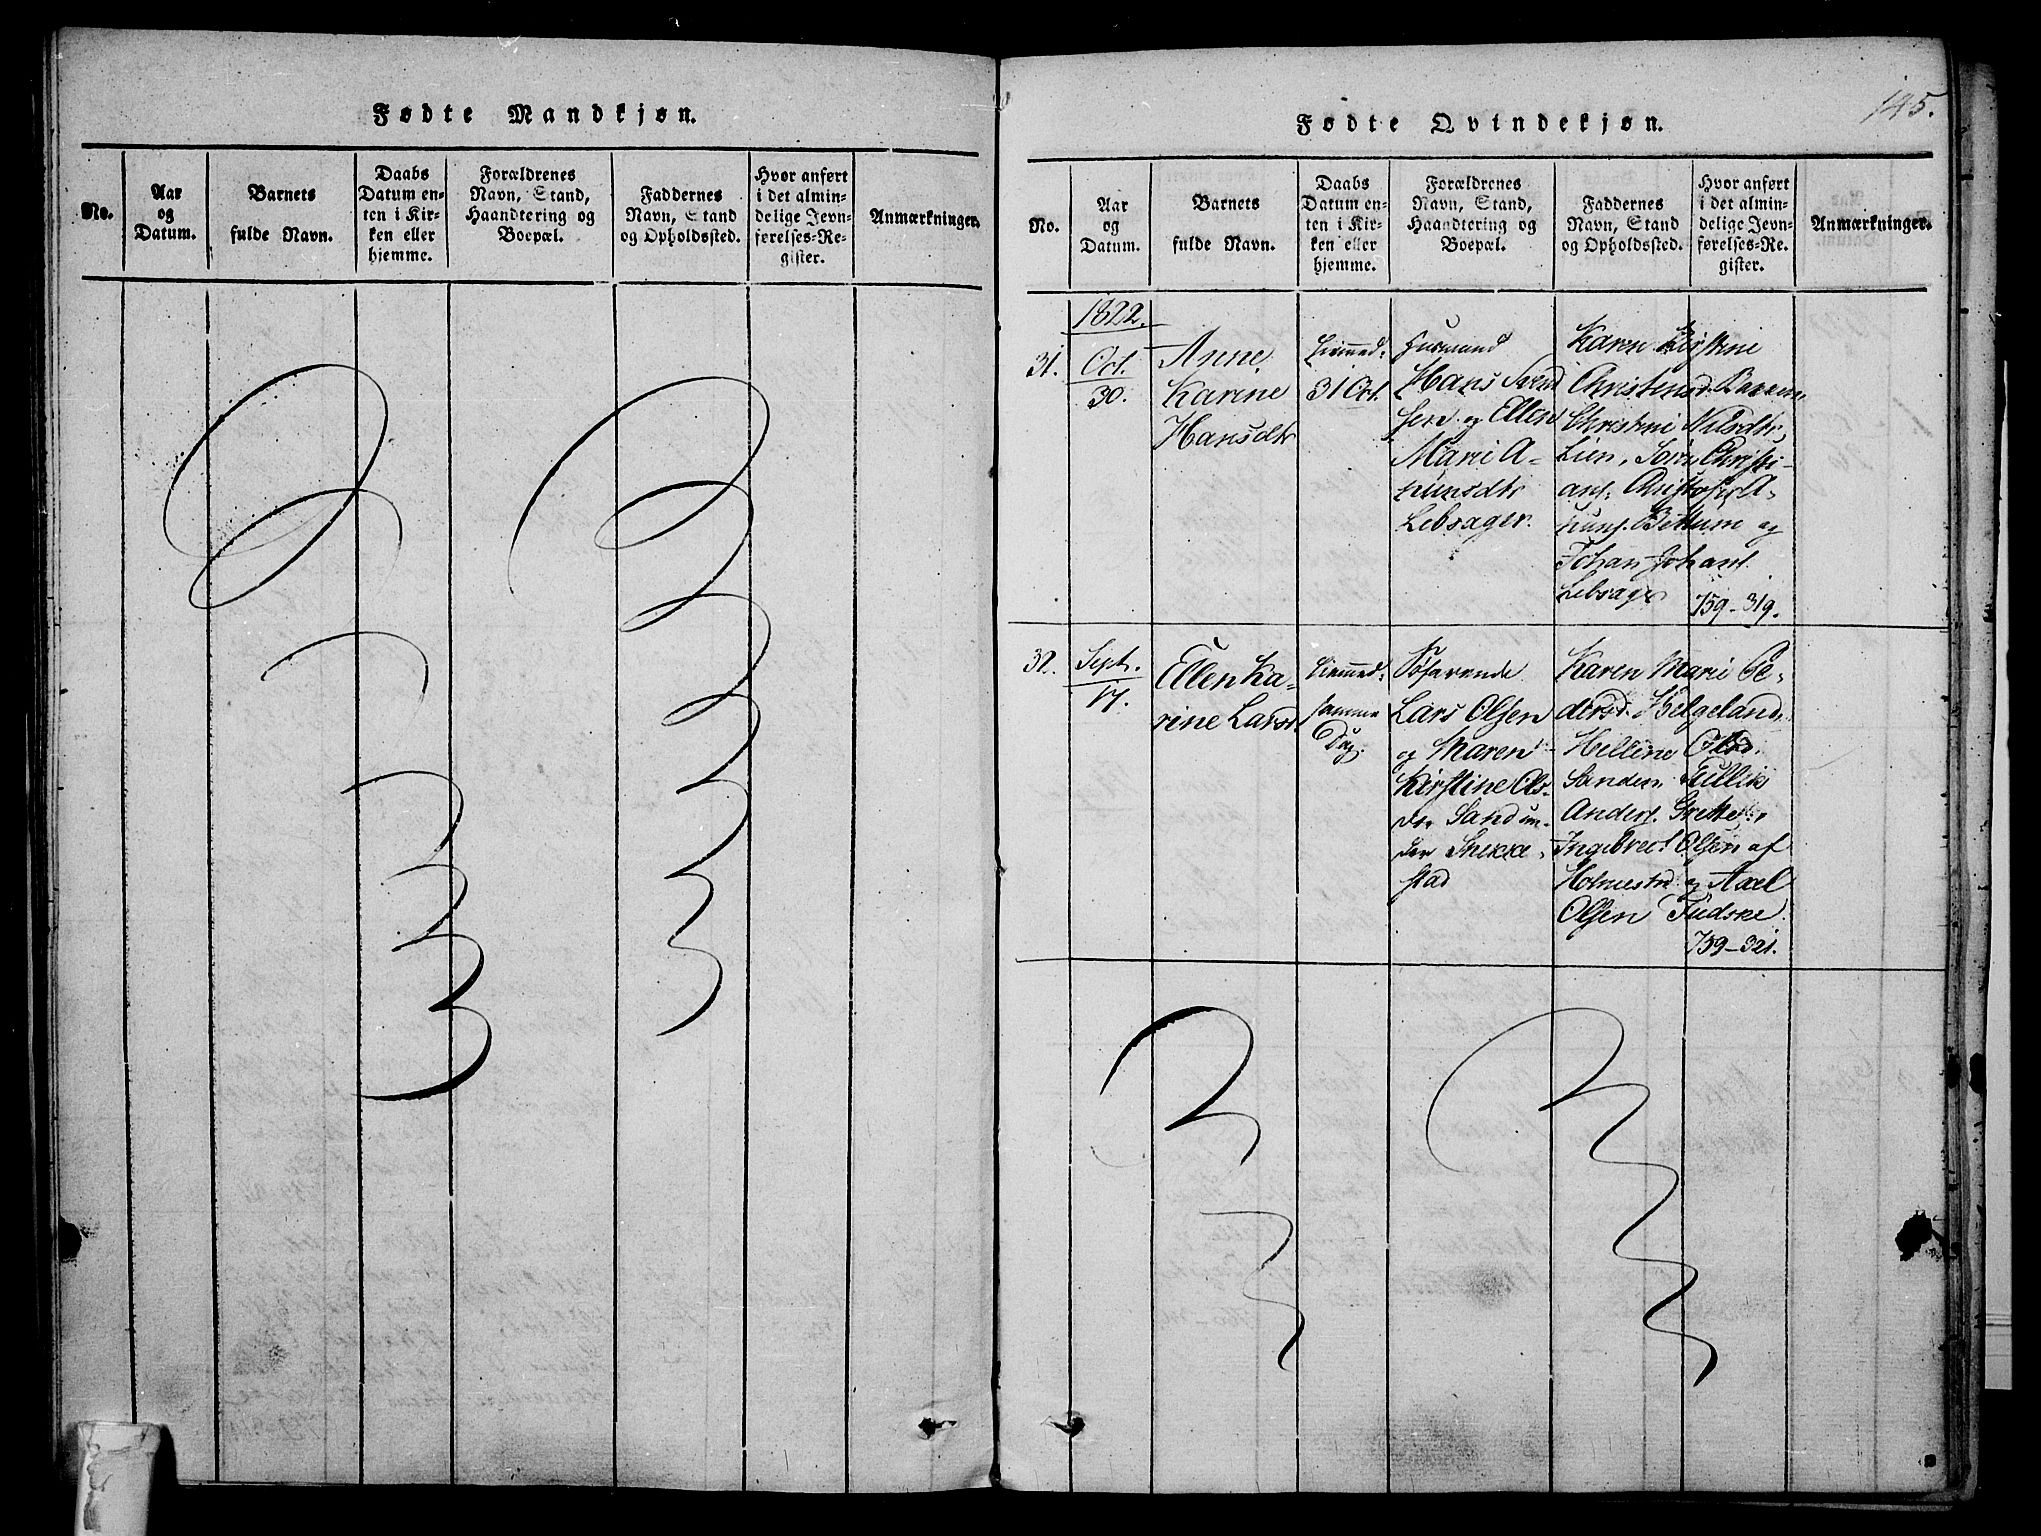 Fødte Mandkjøn.
No.
Aar
og
Datum.
Barnets
fulde Navn.
Daabs
Datum en-
ten i Kir-
ken eller
hjemme.
Forældrenes
Navn, Stand,
Haandtering og
Boepæl.
Faddernes
Navn, Stand
og Opholdssted.
Hvor anført
i det almin-
delige Jevn-
førelses-Re-
gister.
Anmærkninger.
145.
Fødte Qvindekjøn.
No.
Aar
og
Datum.
Barnets
fulde Navn.
Daabs
Datum en-
ten i Kir-
ken eller
hjemme.
Forældrenes
Navn, Stand,
Haandtering og
Boepæl.
Faddernes
Navn, Stand
og Opholdssted.
Hvor anført
i det almin-
delige Jevn-
førelses-Re-
gister.
Anmærkninger.
1822.
31.
Oct.
30.
Anne
Karine
Hansdtr
hiemmed:
31 Oct.
Huusmand
Hans Svend
sen og Ellen
Marie A-
muns dtr
Lebsager.
Karen Kirstine
Christensd. Bakken
Christine Nilsdtr
Lien, Sørn Christi-
ans. Christofer A-
muns. Bettum og
Johan Johans.
Lebsager 759-319.
32.
Sept.
17.
Ellen Ka-
rine Larsd.
hiemmed:
samme
Dag.
Søfarende
Lars Olsen
og Maren
Kirstine Ols-
dr Sand un-
der Snekke-
stad
Karen Marie Pe-
dersd. Helgeland,
Helline Olsd.
Sanden, Tullik
Anders. Grette,
Ingebrect Olsen af
Holmestrd og Axel
Olsen Tudske.
759-321.